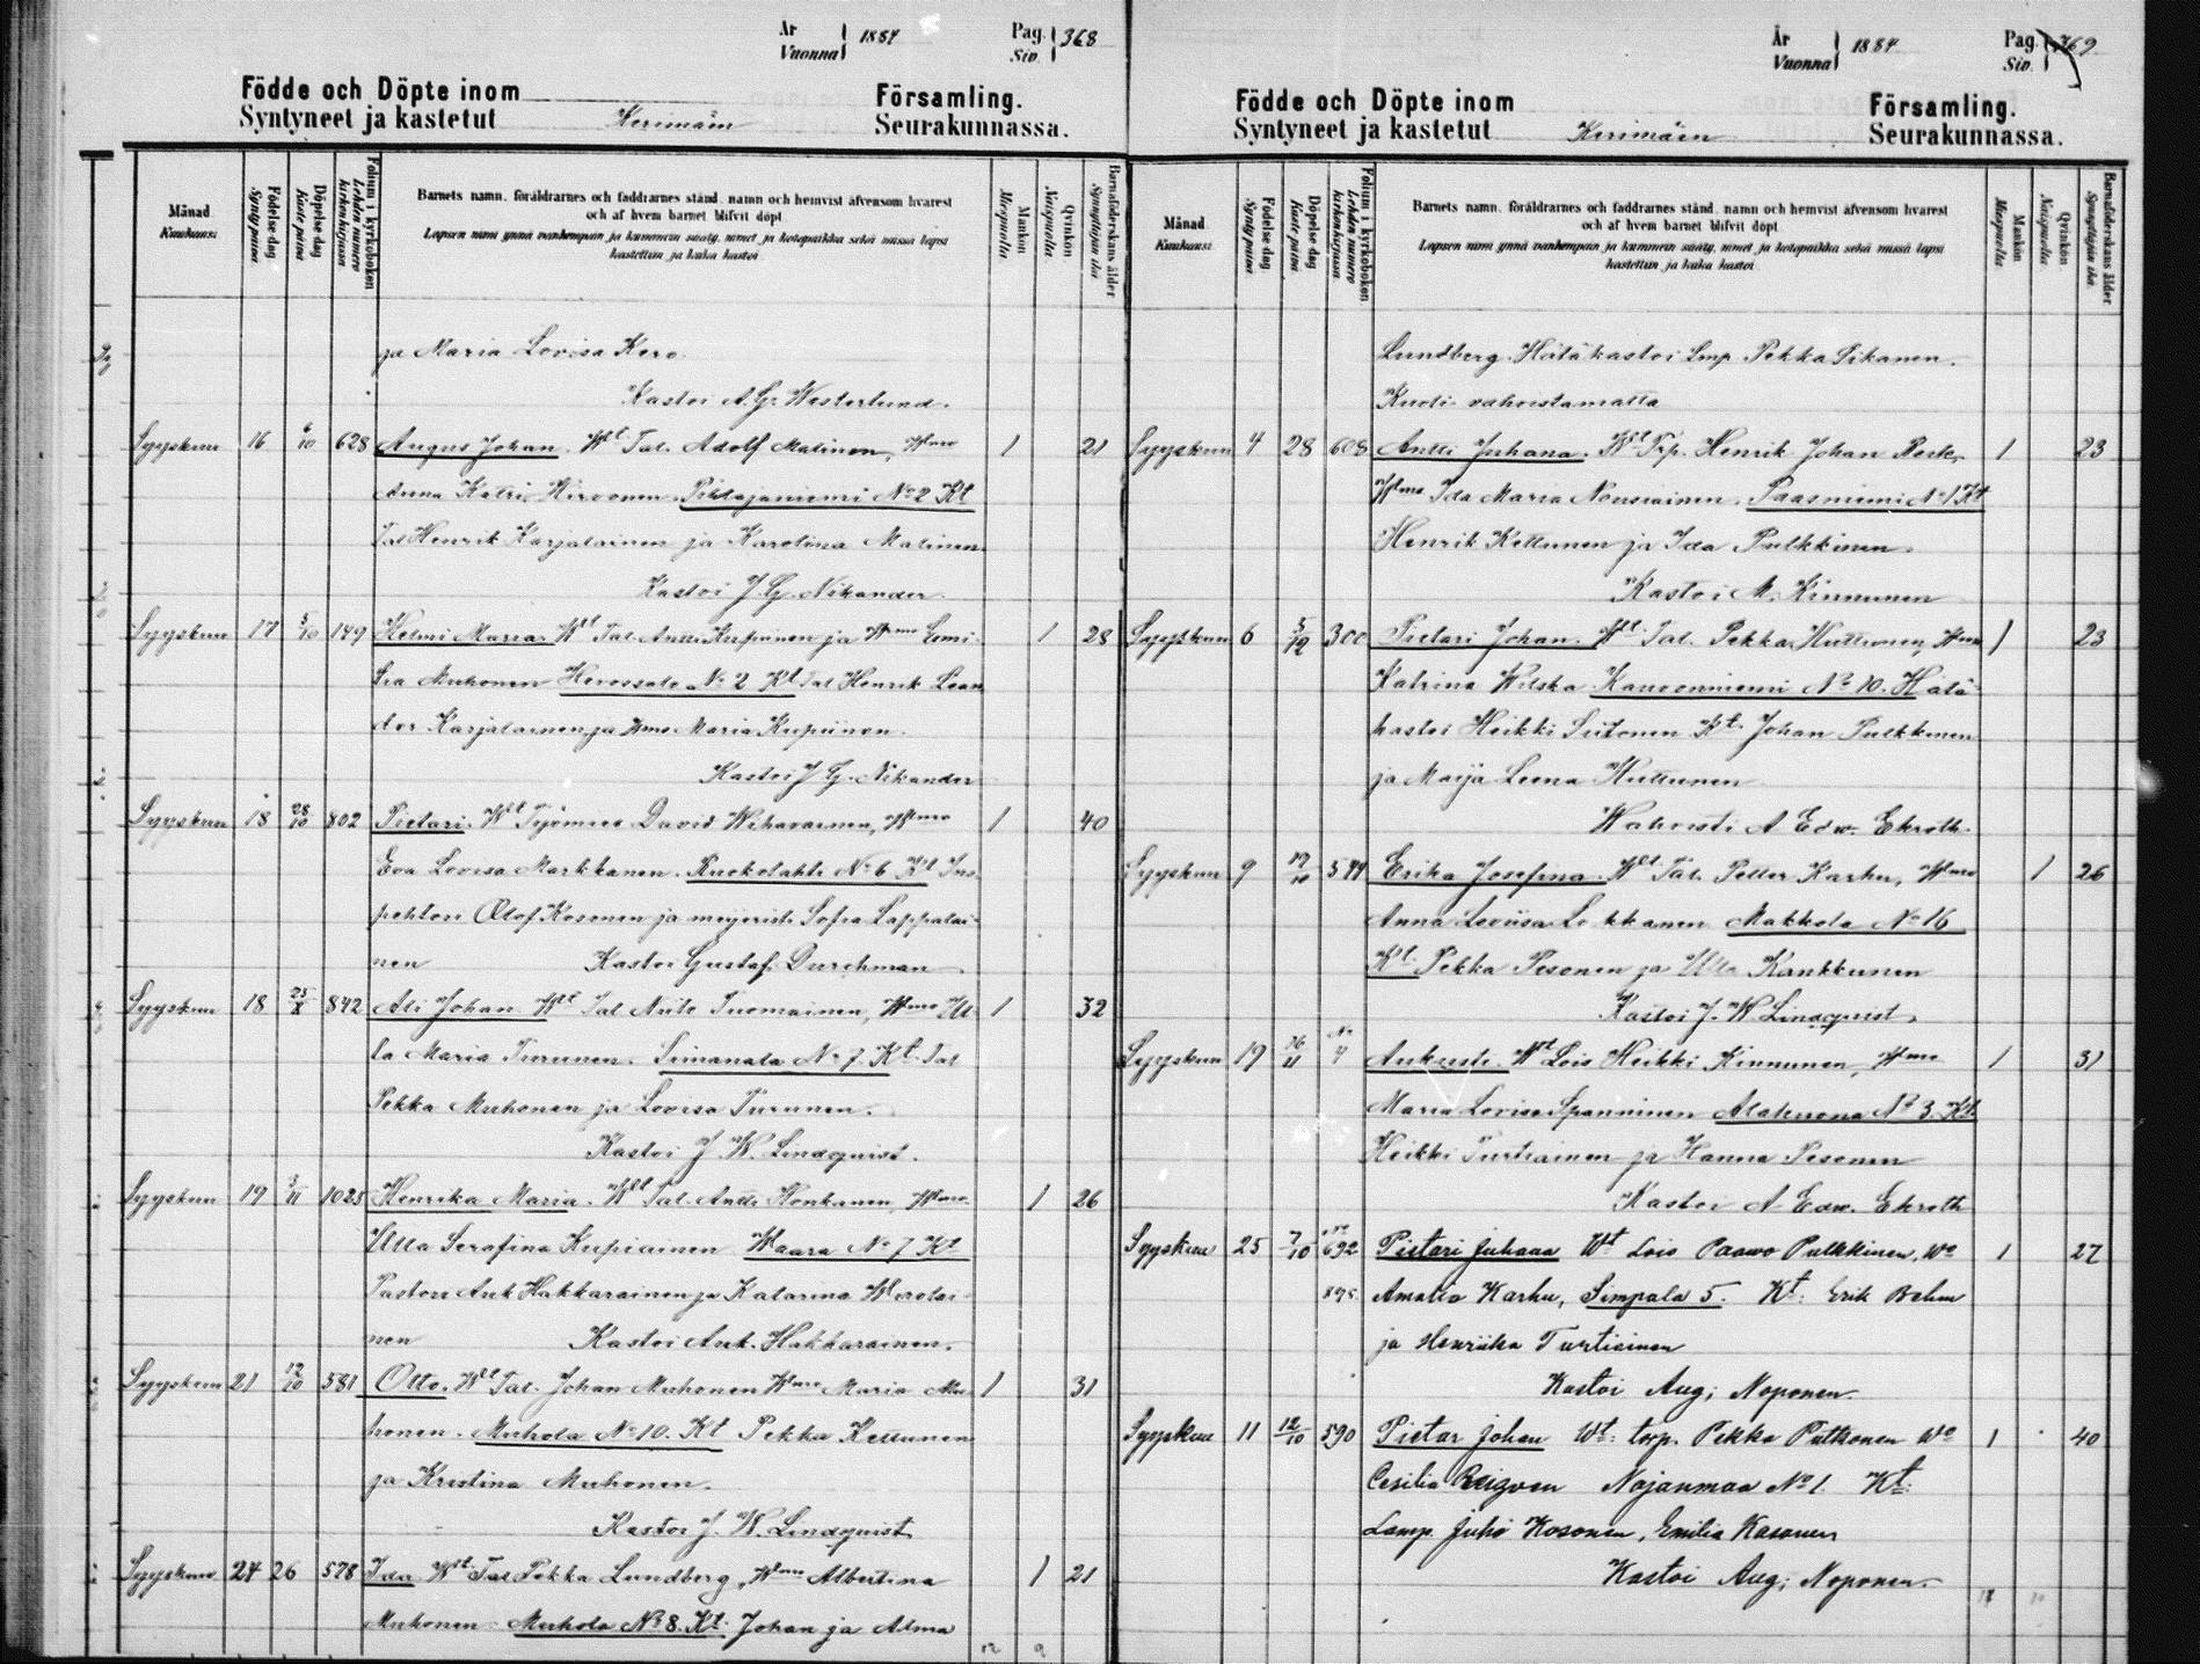 År
Vuonna 1884
Pag.
Siv. 368
Födde och Döpte inom Församling.
Syntyneet ja kastetut Kerimäen Seurakunnassa.
Månad
Kuukausi
Födelse dag
Synty päivä
Döpelse dag
Kaste päivä
Folium i kyrkoboken
Lehden numero kirkonkirjassa
Barnets namn, föräldrarnes och faddrarnes stånd, namn och hemvist äfvensom hvarest
och af hvem barnet blifvit döpt
Lapsen nimi ynnä vanhempain ja kummein sääty, nimet ja kotopaikka sekä missä lapsi
kastettiin ja kuka kastoi
Mankön
Miespuolia
Qvinkön
Naispuolia
Barnaföderskans ålder
Synnyttäjän ikä
ja Maria Lovisa Kero
Kastoi A. G. Westerlund.
Syyskuu 16 6/10 628 August Johan. Wt Tal. Adolf Malinen, Wmo 1 21
Anna Katri Hirvonen. Pihlajaniemi No 2 Kt
Tal Henrik Karjalainen ja Karolina Malinen
Kastoi J. G. Nikander.
Syyskuu 17 5/10 149 Helmi Maria. Wt Tal. Antti Kupiinen ja Wmo Loui- 1 28
sa Muhonen Herossalo No 2 Kt Tal Henrik Lean
der Karjalainen ja Wmo Maria Kupiinen.
Kastoi J G. Nikander
Syyskuu 18 28/10 802 Pietari. Wt Työmies David Wihavainen, Wmo 1 40
Eva Lovisa Markkanen. Ruokolahti No 6 Kt Ins
pehtori Olof Kosonen ja meijeristi Sofia Lappalai-
nen Kastoi Gustaf. Durchman
Syyskuu 18 25/X 842 Ati Johan Wt Tal Niilo Tuomainen, Wmo Ul- 1 32
la Maria Turunen. Simanala No 7. Kt Tal
Pekka Muhonen ja Lovisa Turunen.
Kastoi J W. Lindquist.
Syyskuu 19 3/11 1025 Henrika Maria. Wt Tal. Antti Honkanen, Wmo 1 26
Ulla Serafina Kupiainen Waara No 7 Kt
Pastori Ant Hakkarainen ja Katarina Wirolai-
nen Kastoi Ant. Hakkarainen.
Syyskuu 21 12/10 581 Otto. Wt Tal. Johan Muhonen Wmo Maria Mu- 1 31
honen. Muhola No 10. Kt Pekka Kettunen
ja Kristina Muhonen.
Kastoi J. W. Lindquist
Syyskuu 24 26 578 Ida Wt Tal Pekka Lundberg, Wmo Albertina 1 21
Muhonen Muhola No 8. Kt: Johan ja Alma
12 9
År
Vuonna 1884
Pag.
Siv. 369
Födde och Döpte inom Församling.
Syntyneet ja kastetut Kerimäen Seurakunnassa.
Månad
Kuukausi
Födelse dag
Synty päivä
Döpelse dag
Kaste päivä
Folium i kyrkoboken
Lehden numero kirkonkirjassa
Barnets namn, föräldrarnes och faddrarnes stånd, namn och hemvist äfvensom hvarest
och af hvem barnet blifvit döpt
Lapsen nimi ynnä vanhempain ja kummein sääty, nimet ja kotopaikka sekä missä lapsi
kastettiin ja kuka kastoi
Mankön
Miespuolia
Qvinkön
Naispuolia
Barnaföderskans ålder
Synnyttäjän ikä
Lundberg. Hätäkastoi Lmp. Pekka Pikanen.
Kuoli vahvistamatta
Syyskuu 4 28 608 Antti Juhana. Wt Trp. Henrik Johan 1 23
Wmo Ida Maria Nousiainen. Paasniemi No 1 Kt
Henrik Kettunen ja Ida Pulkkinen.
Kastoi M. Kinnunen
Syyskuu 6 5/12 300 Pietari Johan. Wt Tal. Pekka Huttunen, Wmo 1 23
Katrina Wilska. Kanvonniemi No 10. Hätä-
kastoi Heikki Siitonen Kt Johan Pulkkinen
ja Maija Leena Huttunen
Wahvisti A Edw. Ekroth.
Syyskuu 9 19/10 544 Erika Josefina. Wt Tal. Petter Karhu, Wmo 1 26
Anna Loviisa Lokkanen Makkola No 16
Kt Pekka Pesonen ja Ulla Kankkunen
Kastoi J. W. Lindquist.
Syyskuu 19 16/11 Aukusti. Wt Lois Heikki Kinnunen, Wmo 1 31
Maria Lovisa Spanninen Alakuona No 3. Kt
Heikki Turtiainen ja Hanna Pesonen
Kastoi A Edw. Ekroth
Syyskuu 25 7/10 692 Pietari Juhana Wt Lois Paavo Pulkkinen, Wo 1 27
Amalia Karhu, Simpala 5. Kt: Erik Behm
ja Henriika Turtiainen
Kastoi Aug; Noponen.
Syyskuu 11 12/10 590 Pietar Johan Wt: torp. Pekka Pulkonen Wo 1 40
Cesilia Nojanmaa No 1. Kt:
Lamp. Juho Kosonen, Emilia Kosonen
Kastoi Aug; Noponen.